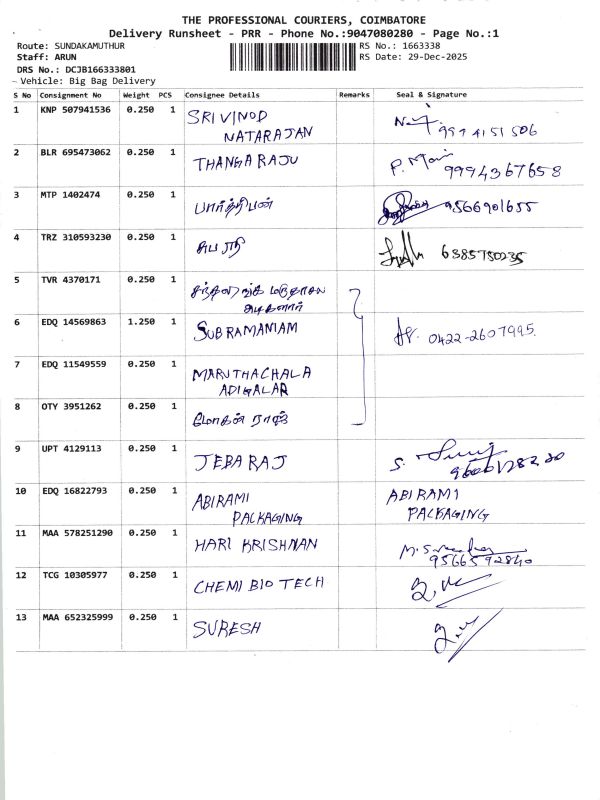 THE PROFESSIONAL COURIERS, COIMBATORE
Delivery Runsheet - PRR - Phone No.:9047080280 - Page No.:1
Route: SUNDAKAMUTHUR
RS No.: 1663338
Staff: ARUN
RS Date: 29-Dec-2025
DRS No.: DCJB166333801
Vehicle: Big Bag Delivery
S No Consignment No Weight PCS Consignee Details Remarks Seal & Signature
1 KNP 507941536 0.250 1 SRI VINOD
NATARAJAN
9994151506
2 BLR 695473062 0.250 1 THANGARAJU P. Mani
9994367658
3 MTP 1402474 0.250 1 பார்த்திபன் 9566901655
4 TRZ 310593230 0.250 1 சுபரூதி 6385780235
5 TVR 4370171 0.250 1
அடிகளார்
6 EDQ 14569863 1.250 1 SUBRAMANIAM 0422-2607995
7 EDQ 11549559 0.250 1 MARUTHACHALA
ADIGALAR
8 OTY 3951262 0.250 1 மோகன் ராஜ்
9 UPT 4129113 0.250 1 JEBARAJ S.
10 EDQ 16822793 0.250 1 ABIRAMI
PACKAGING
ABIRAMI
PACKAGING
11 MAA 578251290 0.250 1 HARI KRISHNAN
9566592840
12 TCG 10305977 0.250 1 CHEMI BIO TECH
13 MAA 652325999 0.250 1 SURESH